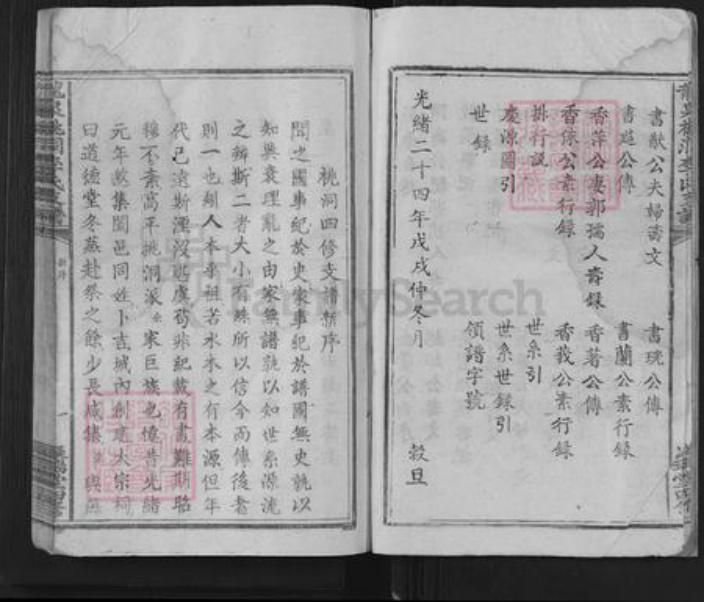 書猷公夫婦壽文
書珖公傳
書超公傳
書蘭公素行錄
香萍公妻郭孺人壽錄
香著公傳
香傃公素行錄
香莪公素行錄
排行說
世系引
慶源圖引
世系世錄引
世錄
領譜字號
光緒二十四年戊戌仲冬月
穀旦
桃洞四修支譜新序
聞之國事紀於史家事紀於譜國無史孰以
知興衰理亂之由家無譜孰以知世系源流
之辨斯二者大小有殊所以信今而傳後者
則一也顧人本乎祖若水木之有本源但年
代已遠斯湮沒堪虞苟非紀載有書難期昭
穆不紊高平桃洞派衆家巨族也憶昔光緒
元年歲集闔邑同姓卜吉城內創建大宗祠
曰道德堂冬蒸赴祭之餘少長咸集
FamilySearch